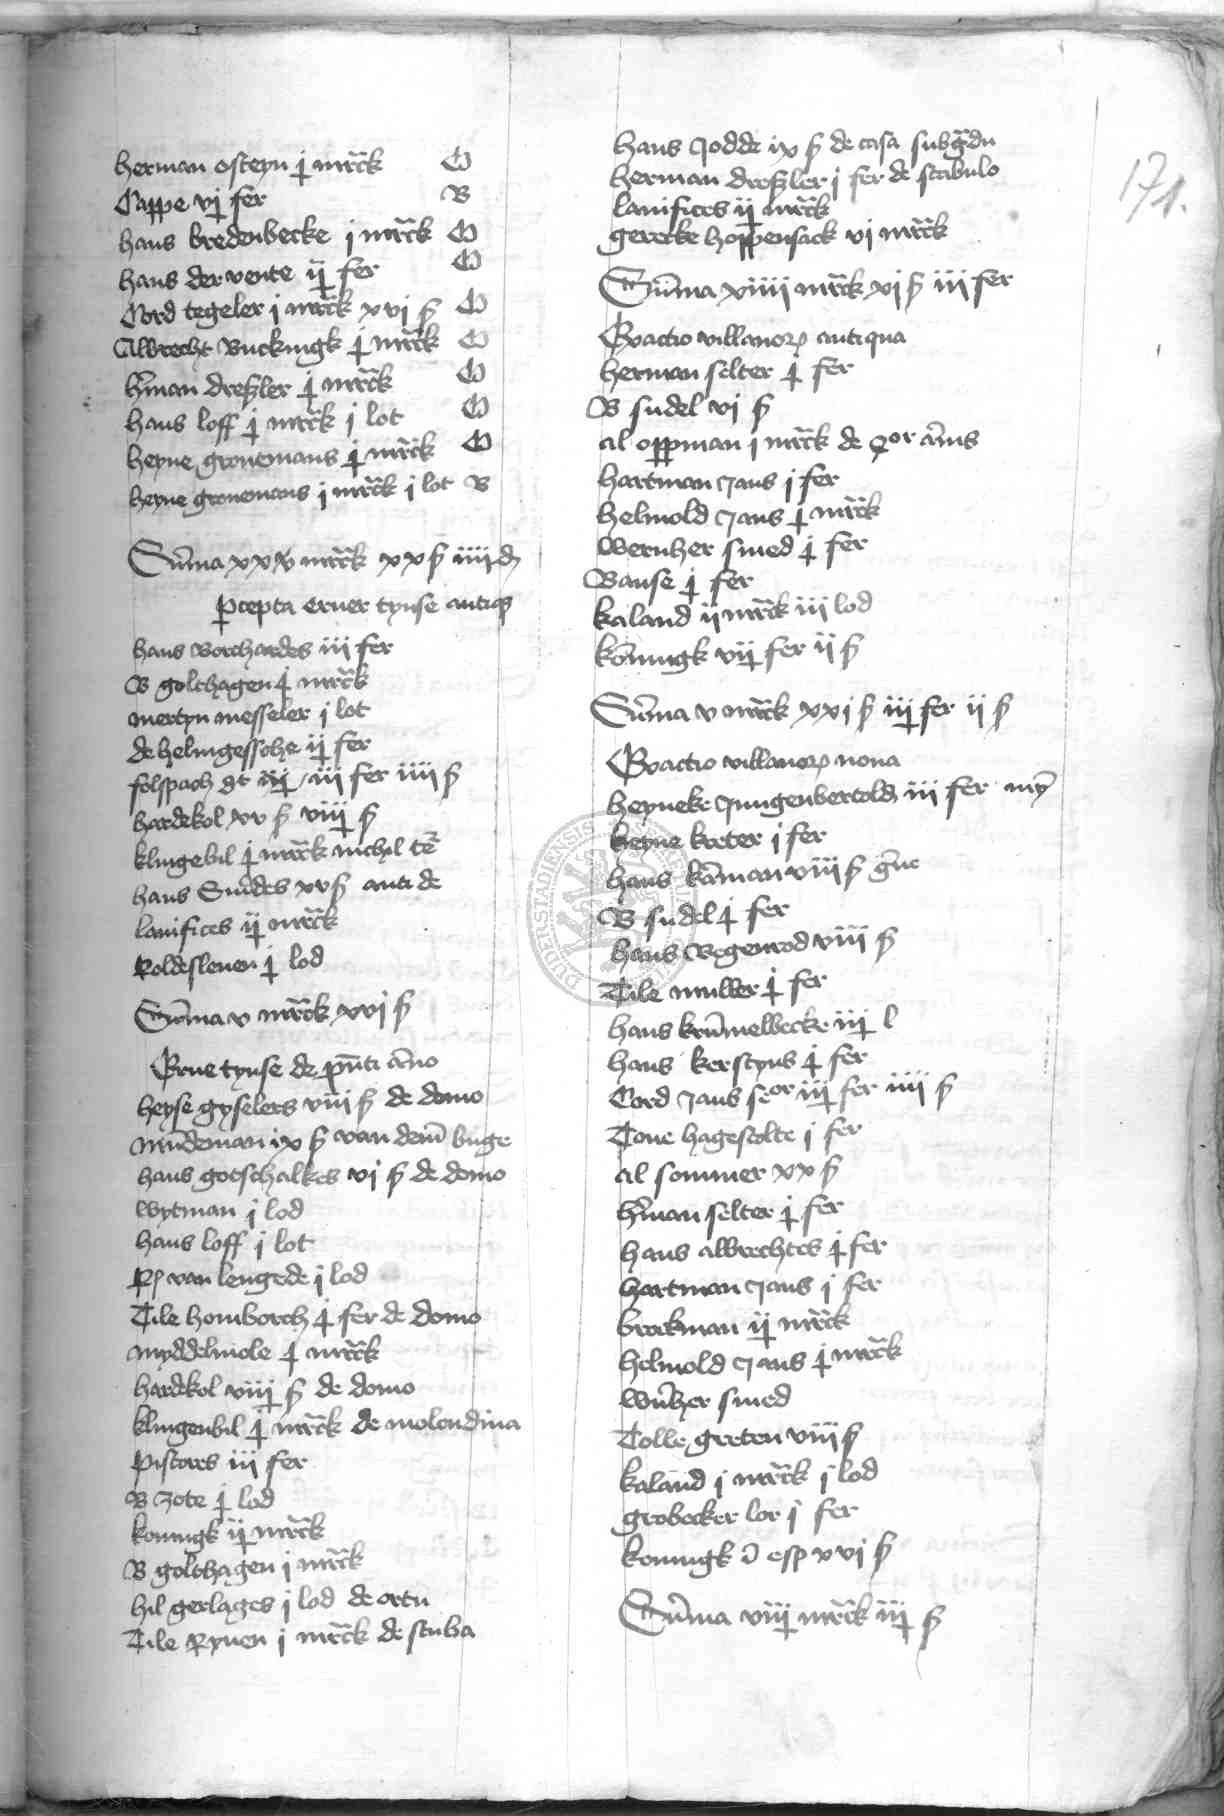 herman osteyn j mrck O
Cappe vj fer B
hans bredenbecke j mrck O
hans der vente ij fer O
Cord tegeler j mrck xvj ß O
Albrecht Buckingk j mrck O
hman dreßler j mrck O
hans loff j mrck j lot O
heyne gronemans j mrck O
heyne gronemans j mrck j lot B
Suma xxv mrck xx ß iiij d
pcepta eruer tynse antiq
hans Borchardes iij fer
B golthagen j mrck
mertyn messeler j lot
de helingessche ij fer
folspach dt iij fer iiij ß
hardekol xv ß viij ß
klingebil j mrck nichil te
hans Smedes xv ß anti de
lanifices ij mrck
Roldesleuen j lod
Suma v mrck xvj ß
Erue tynse de pnti ano
heyse gyselers viij ß de domo
mindeman ix ß van dem buge
hans gotschalkes vj ß de domo
wytman j lod
hans loff j lot
van lengede j lod
Tile homborch j fer de domo
myddelmole j mrck
hardekol viij ß de domo
klingenbil j mrck de molendina
pistores iij fer
B zote j lod
koningk ij mrck
B golthagen j mrck
hil gerlages j lod de ortu
Tile Rynen j mrck de stuba
hans Jodde ix ß de casa subgdu
herman dreßler j fer de stabulo
lanifices ij mrck
gerecke hoppensack vj mrck
Suma xiiij mrck xj ß iij fer
Exactio villanor antiqua
herman selter j fer
B sudel vj ß
al oppman j mrck de qor anis
hartman Jans j fer
helmold Jans j mrck
wernher smed j fer
Banse j fer
kaland ij mrck iij lod
koningk vij fer ij ß
Suma v mrck xxj ß iij fer ij ß
Exactio villanor noua
heyneke Jungenbertold iij fer
heyne kreter j fer
hans kaman viij ß
B sudel j fer
hans Wegenrod viij ß
Tile muller j fer
hans krumelbecke iij l
hans kerstyns j fer
Cord Jans seor iij fer iiij ß
Tone hagestolte j fer
al sommer xx ß
hman selter j fer
hans albrechtes j fer
hartman Jans j fer
brakman ij mrck
helmold Jans j mrck
wnher smed
Tolle greten viij ß
kaland j mrck j lod
grobecker lor j fer
koningk i esp xvj ß
Suma viij mrck iij ß
171.